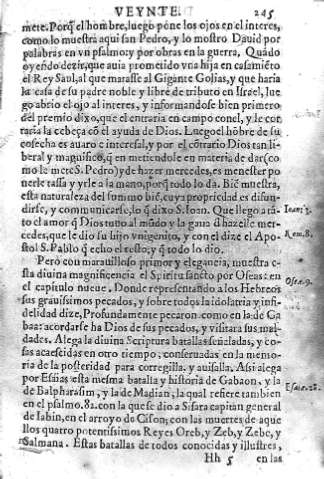 VEYNTE. 245
mete. Porq̃ el hombre, luego pone los ojos en el interes,
como lo muestra aqui san Pedro, y lo mostro Dauid por
palabras en vn psalmo: y por obras en la guerra. Quãdo
oyendo dezir, que auia prometido vna hija en casamiẽto
el Rey Saul, al que matasse al Gigante Golias, y que haria
la casa de su padre noble y libre de tributo en Israel, lue
go abrio el ojo al interes, y informandose bien primero
del premio dixo, que el entraria en campo conel, y le cor
taria la cabeça cõ el ayuda de Dios. Luego el hõbre de su
cosecha es auaro e interesal, y por el cõtrario Dios tan li
beral y magnifico, q̃ en metiendole en materia de dar (co
mo le mete S. Pedro) y de hazer mercedes, es menester po
nerle tassa y yrle a la mano, porq̃ todo lo da. Biẽ muestra,
esta naturaleza del summo biẽ, cuya propriedad es difun
dirse, y communicarse, lo q̃ dixo S. Ioan. Que llego a tã-
to el amor q̃ Dios tuuo al mũdo y la gana d̃ hazelle mer-
cedes, que le dio su hijo vnigenito, y con el dize el Apo-
stol S. Pablo q̃ echo el resto, y q̃ todo lo dio.
Ioan. 3.
Rom. 8.
Pero con marauilloso primor y elegancia, muestra e-
sta diuina magnificencia el Spiritu sancto por Oseas: en
el capitulo nueue. Donde representando a los Hebreos
sus grauissimos pecados, y sobre todos la idolatria y infi-
delidad dize, Profundamente pecaron como en la de Ga
baa: acordarse ha Dios de sus pecados, y visitara sus mal-
dades. Alega la diuina Scriptura batallas señaladas, y co-
sas acaescidas en otro tiempo, conseruadas en la memo-
ria de la posteridad para corregilla, y auisalla. Assi alega
por Esaias esta mesma batalla y historia de Gabaon, y la
de Balpharasim, y la de Madian, la qual refiere tambien
en el psalmo. 82. con la que se dio a Sisara capitan general
de Iabin, en el arroyo de Cison, con las muertes de aque
llos quatro potentissimos Reyes Oreb, y Zeb, y Zebe, y
Salmana. Estas batallas de todos conocidas y illustres,
Osee. 9.
Esai. 28.
Hh 5 en las